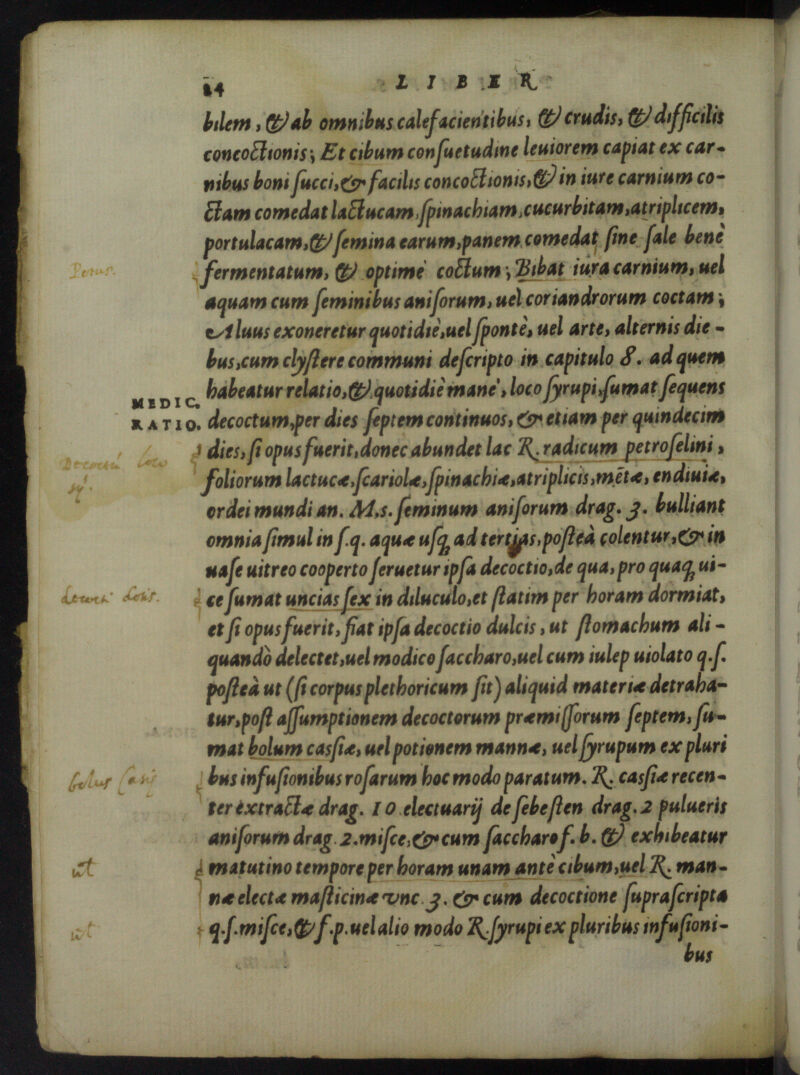 24 LIBER
bilem, & ab omnibus calefacientibus, & crudis, & difficilis
concoctionis; Et cibum consuetudine leuiorem capiat ex car-
nibus boni succi, & facilis concoctionis, & in iure carnium co-
ctam comedat lactucam, spinachiam, cucurbitam, atriplicem,
portulacam, & semina earum, panem comedat sine sale bene
fermentatum, & optimè coctum; Bibat iura carnium, uel
aquam cum seminibus anisorum, uel coriandrorum coctam;
Aluus exoneretur quotidiè, uel spontè, uel arte, alternis die-
bus, cum clystere communi descripto in capitulo 8. ad quem
habeatur relatio, & quotidiè manè, loco syrupi, sumat sequens
MEDIC.
RATIO.
decoctum, per dies septem continuos, & etiam per quindecim
dies, si opus fuerit, donec abundet lac ℞. radicum petroselini,
foliorum lactucæ, scariolæ, spinachiæ, atriplicis, mētæ, endiuiæ,
ordei mundi an. M. s. seminum anisorum drag. 3. bulliant
omnia simul in s.q. aquæ usq; ad tertias, posteà colentur, & in
uase uitreo cooperto seruetur ipsa decoctio, de qua, pro quaq; ui-
ce sumat uncias sex in diluculo, et statim per horam dormiat,
et si opus fuerit, fiat ipsa decoctio dulcis, ut stomachum ali-
quandò delectet, uel modico saccharo, uel cum iulep uiolato q.s.
posteà ut (si corpus plethoricum sit) aliquid materiæ detraha-
tur, post assumptionem decoctorum præmissorum septem, su-
mat bolum casſiæ, uel potionem mannæ, uel syrupum ex pluri
bus infusionibus rosarum hoc modo paratum. ℞. casſiæ recen-
ter extractæ drag. 10 electuarij de sebesten drag. 2 pulueris
anisorum drag. 2. misce, & cum saccharo f. b. & exhibeatur
matutino tempore per horam unam antè cibum, uel ℞. man-
næ electæ masticinæ vnc. 3. & cum decoctione suprascripta
q.s. misce, & f.p. uel alio modo ℞. syrupi ex pluribus infusioni-
bus
ut
ut